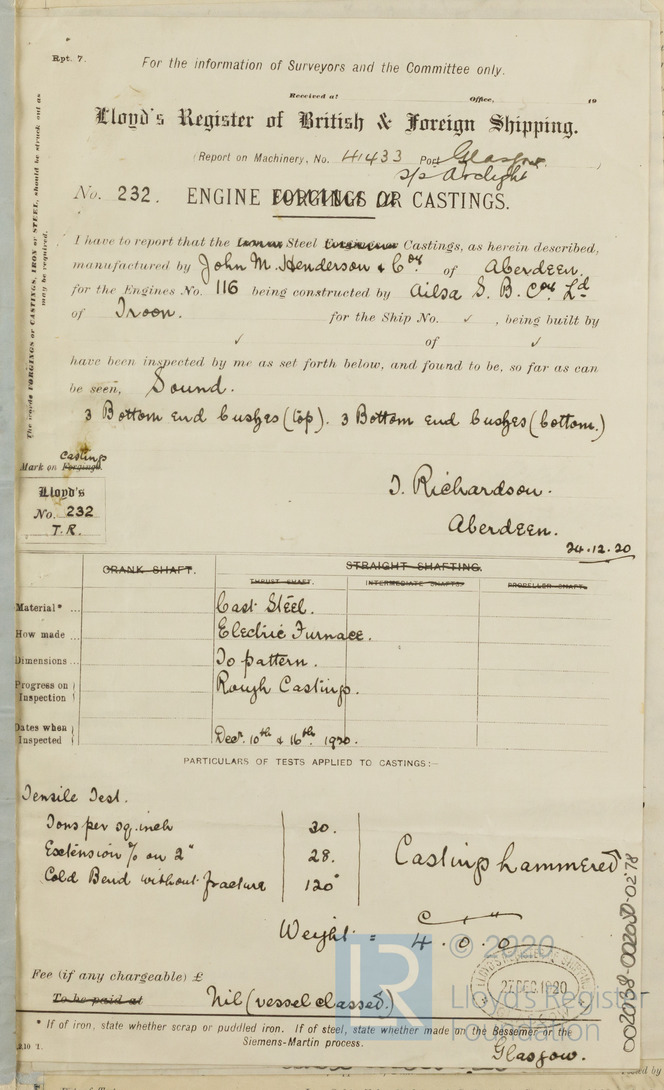 Rpt. 7.
For the information of Surveyors and the Committee only.
Received at Office, 19
Lloyd's Register of British & Foreign Shipping.
(Report on Machinery, No. 41433 Port Glasgow
s/s Arclight
No. 232. ENGINE FORGINGS OR CASTINGS.
I have to report that the Steel Castings, as herein described,
manufactured by John M. Henderson & Coy of Aberdeen.
for the Engines No. 116 being constructed by Ailsa S. B. Coy Ld
of Troon. for the Ship No. ✓ , being built by
✓ of ✓
have been inspected by me as set forth below, and found to be, so far as can
be seen, Sound.
3 Bottom end bushes (top). 3 Bottom end bushes (bottom.)
The words FORGINGS or CASTINGS, IRON or STEEL, should be struck out as
may be required.
Casting
Mark on Forging.
Lloyd's
No. 232
T.R.
T. Richardson.
Aberdeen.
24.12.20
CRANK SHAFT. STRAIGHT SHAFTING.
THRUST SHAFT. INTERMEDIATE SHAFTS. PROPELLER SHAFT.
Material* ... Cast Steel.
How made ... Electric Furnace.
Dimensions ... To pattern.
Progress on Inspection Rough Castings.
Dates when Inspected Decr. 10th & 16th. 1920.
PARTICULARS OF TESTS APPLIED TO CASTINGS:—
Tensile Test.
Tons per sq. inch 30.
Extension % on 2" 28.
Cold Bend without fracture 120°
Castings hammered
Weight = 4 . 0 . 0
© 2020
Lloyd's Register
Foundation
LR
27 DEC 1920
Fee (if any chargeable) £
To be paid at Nil (vessel classed.)
* If of iron, state whether scrap or puddled iron. If of steel, state whether made on the Bessemer or the
Siemens-Martin process.
Glasgow.
002038-002050-0278